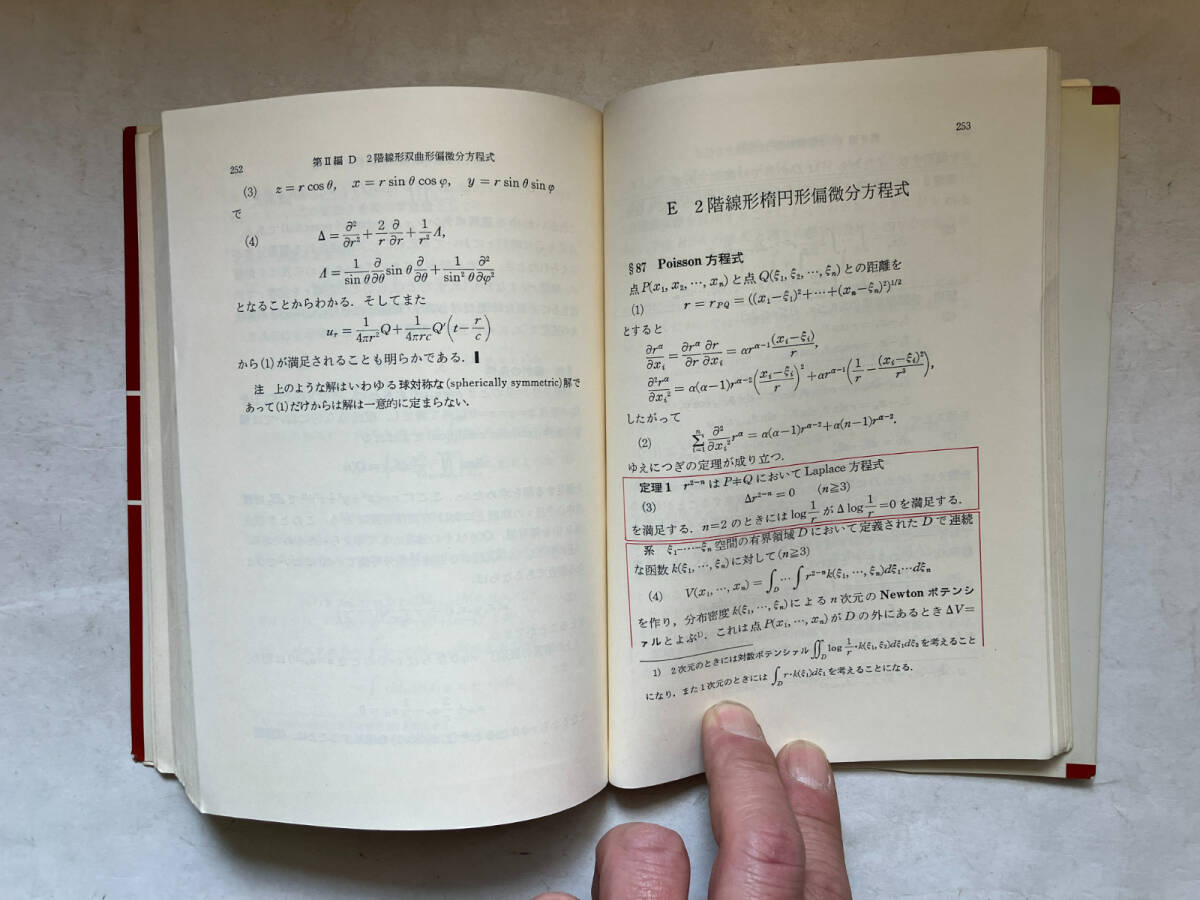 252
第Ⅱ編 D 2階線形双曲形偏微分方程式
(3) z = r cos θ, x = r sin θ cos φ, y = r sin θ sin φ
で
(4) Δ = ∂²/∂r² + 2/r ∂/∂r + 1/r² Λ,
Λ = 1/sin θ ∂/∂θ sin θ ∂/∂θ + 1/sin² θ ∂²/∂φ²
となることからわかる. そしてまた
u_r = 1/4πr² Q + 1/4πrc Q′(t − r/c)
から(1)が満足されることも明らかである.
注 上のような解はいわゆる球対称な(spherically symmetric)解で
あって(1)だけからは解は一意的に定まらない.
253
E 2階線形楕円形偏微分方程式
§87 Poisson 方程式
点P(x₁, x₂, …, xₙ)と点Q(ξ₁, ξ₂, …, ξₙ)との距離を
(1) r = r_PQ = ((x₁−ξ₁)²+⋯+(xₙ−ξₙ)²)^{1/2}
とすると
∂r^α/∂xᵢ = ∂r^α/∂r ∂r/∂xᵢ = αr^{α−1} (xᵢ−ξᵢ)/r,
∂²r^α/∂xᵢ² = α(α−1)r^{α−2}((xᵢ−ξᵢ)/r)² + αr^{α−1}(1/r − (xᵢ−ξᵢ)²/r³),
したがって
(2) Σ_{i=1}^{n} ∂²/∂xᵢ² r^α = α(α−1)r^{α−2}+α(n−1)r^{α−2}.
ゆえにつぎの定理が成り立つ.
定理1 r^{2−n} は P≠Q において Laplace 方程式
(3) Δr^{2−n} = 0 (n≧3)
を満足する. n=2 のときには log 1/r が Δ log 1/r =0 を満足する.
系 ξ₁-⋯-ξₙ 空間の有界領域 D において定義された D で連続
な函数 k(ξ₁, …, ξₙ)に対して(n≧3)
(4) V(x₁, …, xₙ) = ∫_D ⋯ ∫ r^{2−n}k(ξ₁, …, ξₙ)dξ₁⋯dξₙ
を作り, 分布密度 k(ξ₁, …, ξₙ)による n 次元の Newton ポテンシ
ァルとよぶ¹⁾. これは点 P(x₁, …, xₙ)が D の外にあるとき ΔV=
1) 2次元のときには対数ポテンシァル ∬_D log 1/r・k(ξ₁, ξ₂)dξ₁dξ₂ を考えること
になり, また1次元のときには ∫_D r・k(ξ₁)dξ₁ を考えることになる.